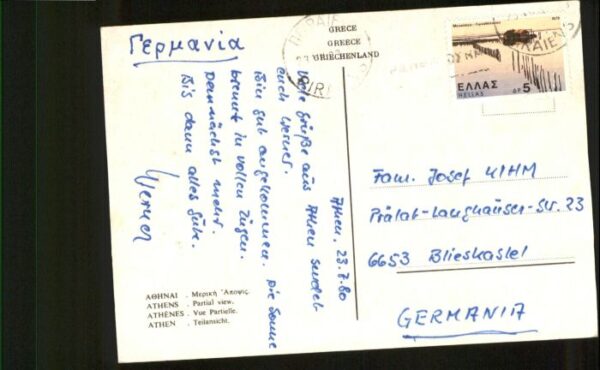 Γερμανία
GRECE
GREECE
GRIECHENLAND
ΕΛΛΑΣ
HELLAS
ΔΡ 5
Athen. 23.7.80
Viele Grüße aus Athen sendet
euch Werner.
Bin gut angekommen. Die Sonne
brennt in vollen Zügen.
Demnächst mehr.
Bis dann alles Gute.
Werner
Fam. Josef KIHM
Prälat-Langhäuser-Str. 23
6653 Blieskastel
GERMANIA
ΑΘΗΝΑΙ . Μερική Ἄποψις.
ATHENS . Partial view.
ATHÈNES . Vue Partielle.
ATHEN . Teilansicht.